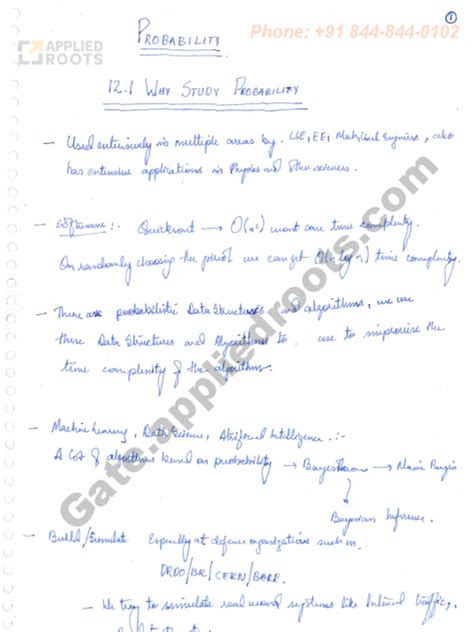 1
Phone: +91 844-844-0102
APPLIED
ROOTS
PROBABILITY
12.1 WHY STUDY PROBABILITY
- Used extensively in multiple areas by CSE, EE, Mechanical Engineers, also
has extensive applications in Physics and other sciences.
- Software :- Quicksort → O(n²) worst case time complexity.
On randomly choosing the pivot we can get O(n log n) time complexity.
- There are probabilistic Data Structures and algorithms, we use
these Data Structures and Algorithms to use to improvise the
time complexity of the algorithm.
- Machine Learning, Data Science, Artificial Intelligence :-
A lot of algorithms based on probability → Bayes Theorem → Naive Bayes
↓
Bayesian Inference.
- Build/Simulate Especially at defence organizations such as
DRDO/ISR/CERN/BARC.
- We try to simulate real world systems like Internet traffic,
Gate.appliedroots.com